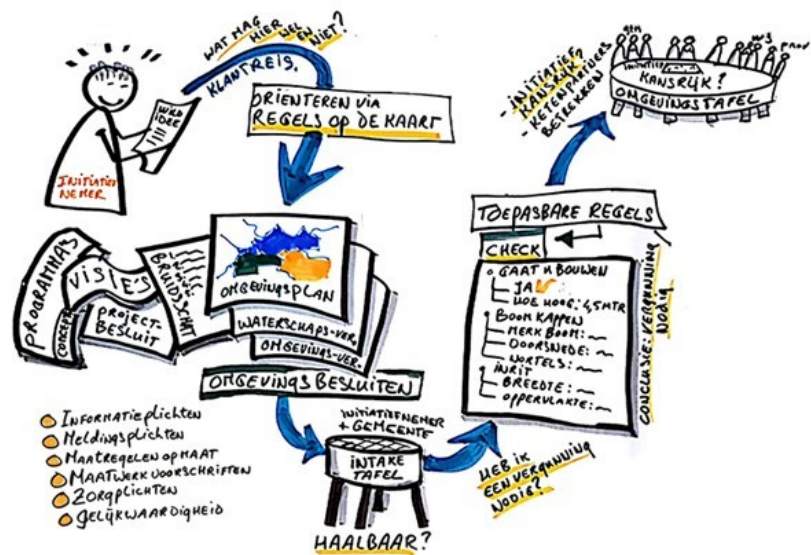 WAT MAG HIER WEL EN NIET?
KLANTREIS.
WILD
IDEE
INITIATIEF
NEMER
ORIËNTEREN VIA
REGELS OP DE KAART
PROGRAMMA'S
CONCEPT
VISIE'S
PROJECT-
BESLUIT
BRUIDSSCHAT
OMGEVINGSPLAN
WATERSCHAPS-VER.
OMGEVINGS-VER.
OMGEVINGSBESLUITEN
INFORMATIEPLICHTEN
MELDINGSPLICHTEN
MAATREGELEN OP MAAT
MAATWERKVOORSCHRIFTEN
ZORGPLICHTEN
GELIJKWAARDIGHEID
INITIATIEFNEMER
+ GEMEENTE
INTAKE
TAFEL
HAALBAAR?
HEB IK
EEN VERGUNNING
NODIG?
TOEPASBARE REGELS
CHECK
GAAT U BOUWEN
JA
HOE HOOG: 4,5 MTR
BOOM KAPPEN
MERK BOOM:
DOORSNEDE:
WORTELS:
INRIT
BREEDTE:
OPPERVLAKTE:
CONCLUSIE: VERGUNNING
NODIG
- INITIATIEF
KANSRIJK?
- KETENPARTNERS
BETREKKEN
GEM
WS
PROV
INITIATIEF
KANSRIJK?
OMGEVINGSTAFEL